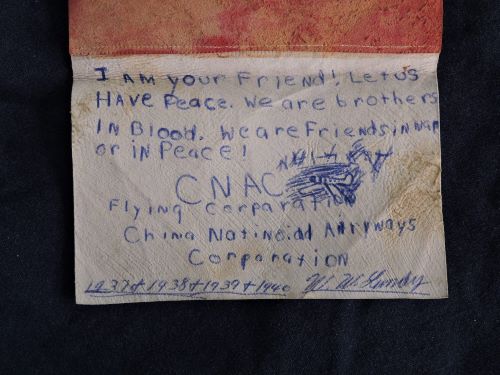 I AM your Friend! Let us
HAVE Peace. We are brothers
IN Blood. We are Friends in war
or in Peace!
CNAC
Flying Corparation
China Notinoial Airyways
Corporation
1937+1938+1939+1940 W. W.